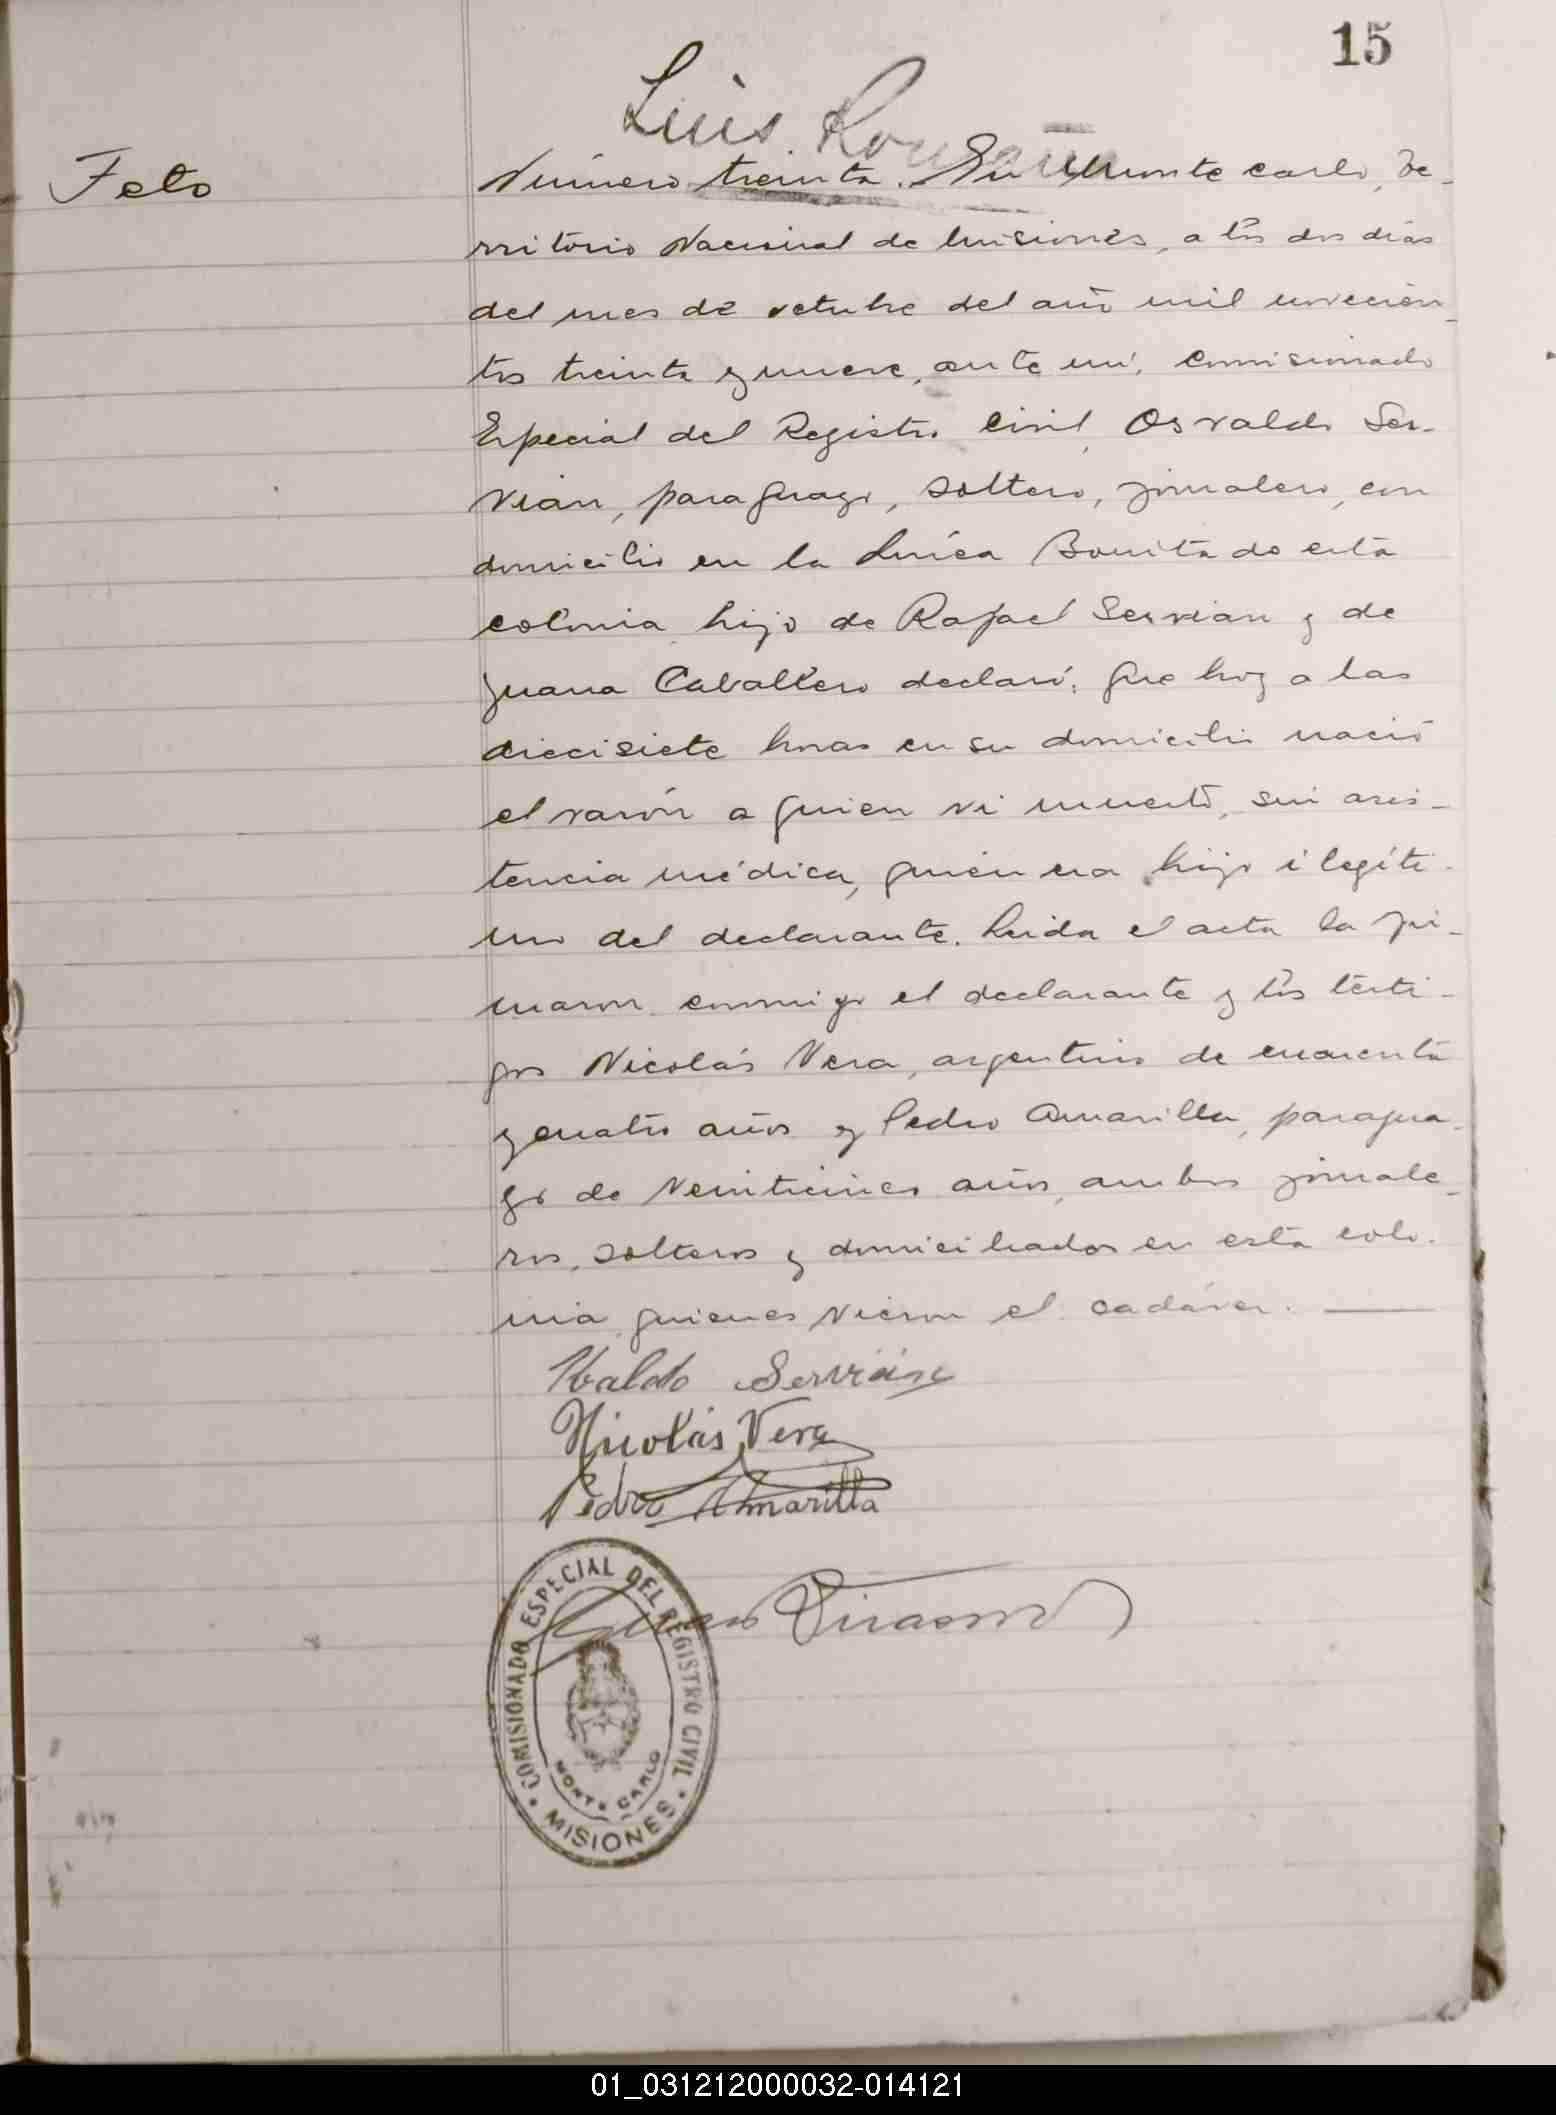 15
Luis Román
Feto
Número treinta. En Monte Carlo, Te-
rritorio Nacional de Misiones, a los dos días
del mes de octubre del año mil novecien-
tos treinta y nueve, ante mí, Comisionado
Especial del Registro Civil, Osvaldo Ser-
vian, paraguayo, soltero, jornalero, con
domicilio en la Linea Bonita de esta
colonia hijo de Rafael Servian y de
Juana Caballero declaró: Que hoy a las
diecisiete horas en su domicilio nació
el varón a quien vi muerto, sin asis-
tencia médica, quien era hijo ilegíti-
mo del declarante. Leida el acta la fir-
maron conmigo el declarante y los testi-
gos Nicolás Vera, argentino de cuarenta
y cuatro años y Pedro Amarilla, paragua-
yo de veinticinco años, ambos jornale-
ros, solteros y domiciliados en esta colo-
nia quienes vieron el cadáver.
Ubaldo Servián
Nicolás Vera
Pedro Amarilla
COMISIONADO ESPECIAL DEL REGISTRO CIVIL
MONTE CARLO
MISIONES
01_031212000032-014121